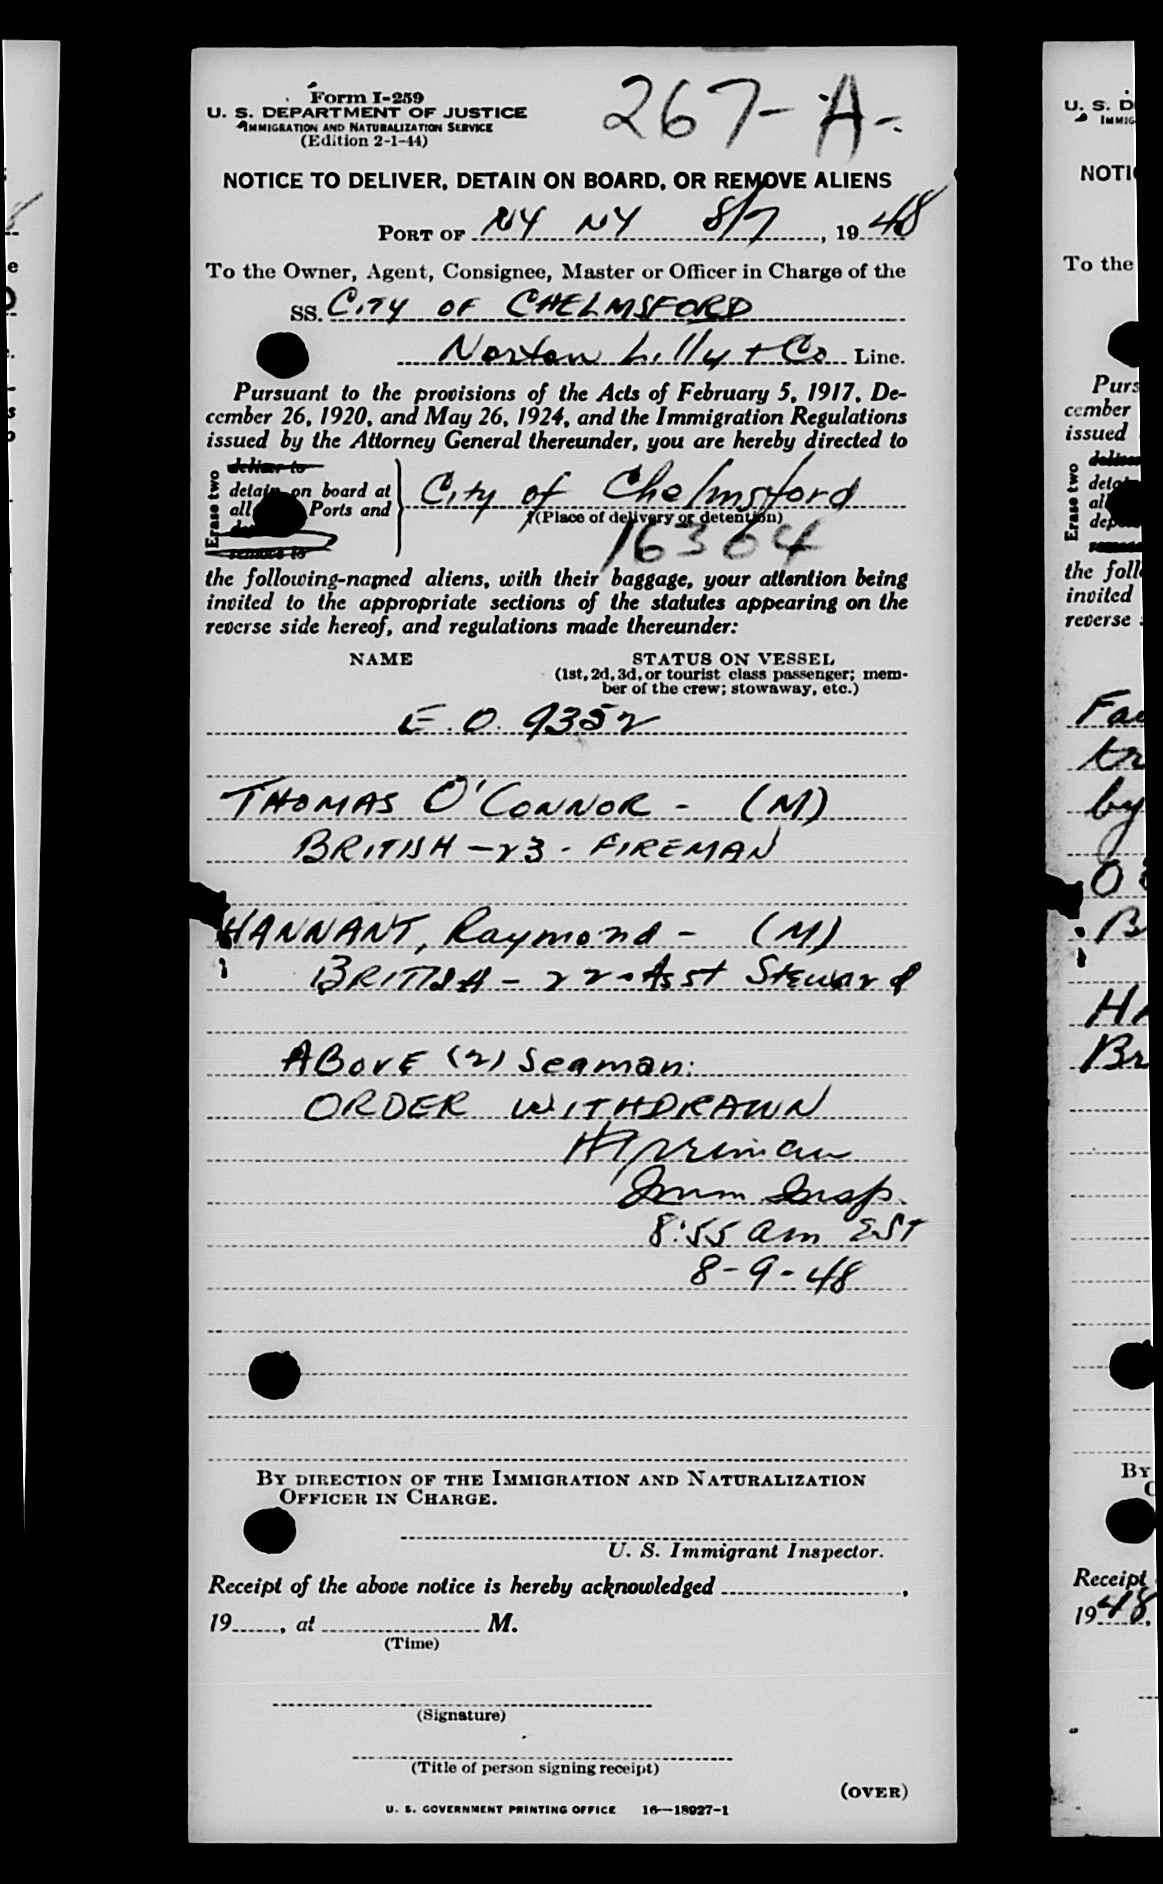 Form I-259
U. S. DEPARTMENT OF JUSTICE
IMMIGRATION AND NATURALIZATION SERVICE
(Edition 2-1-44)
267-A-
NOTICE TO DELIVER, DETAIN ON BOARD, OR REMOVE ALIENS
PORT OF NY NY 8/7, 1948
To the Owner, Agent, Consignee, Master or Officer in Charge of the
SS. CITY OF CHELMSFORD
Norton Lilly + Co Line.
Pursuant to the provisions of the Acts of February 5, 1917, De-
cember 26, 1920, and May 26, 1924, and the Immigration Regulations
issued by the Attorney General thereunder, you are hereby directed to
Erase two
deliver to
detain on board at
all Ports and
remove to
City of Chelmsford
(Place of delivery or detention)
16364
the following-named aliens, with their baggage, your attention being
invited to the appropriate sections of the statutes appearing on the
reverse side hereof, and regulations made thereunder:
NAME STATUS ON VESSEL
(1st, 2d, 3d, or tourist class passenger; mem-
ber of the crew; stowaway, etc.)
E. O. 9352
THOMAS O'CONNOR - (M)
BRITISH - 23 - FIREMAN
HANNANT, Raymond - (M)
BRITISH - 22 - Asst Steward
ABOVE (2) Seaman:
ORDER WITHDRAWN
Imm Insp.
8:55 am EST
8-9-48
BY DIRECTION OF THE IMMIGRATION AND NATURALIZATION
OFFICER IN CHARGE.
U. S. Immigrant Inspector.
Receipt of the above notice is hereby acknowledged ,
19 , at M.
(Time)
(Signature)
(Title of person signing receipt)
(OVER)
U. S. GOVERNMENT PRINTING OFFICE 16—18027-1
U. S. D
IMMIG
NOTI
To the
Purs
cember
issued
Erase two
the foll
invited
reverse
Fa
tr
by
O
B
HA
Br
BY
Receipt
1948